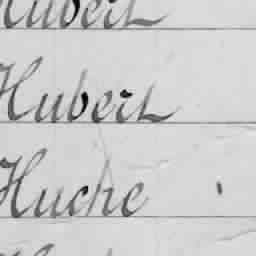 Hubert
Hubert
Huche